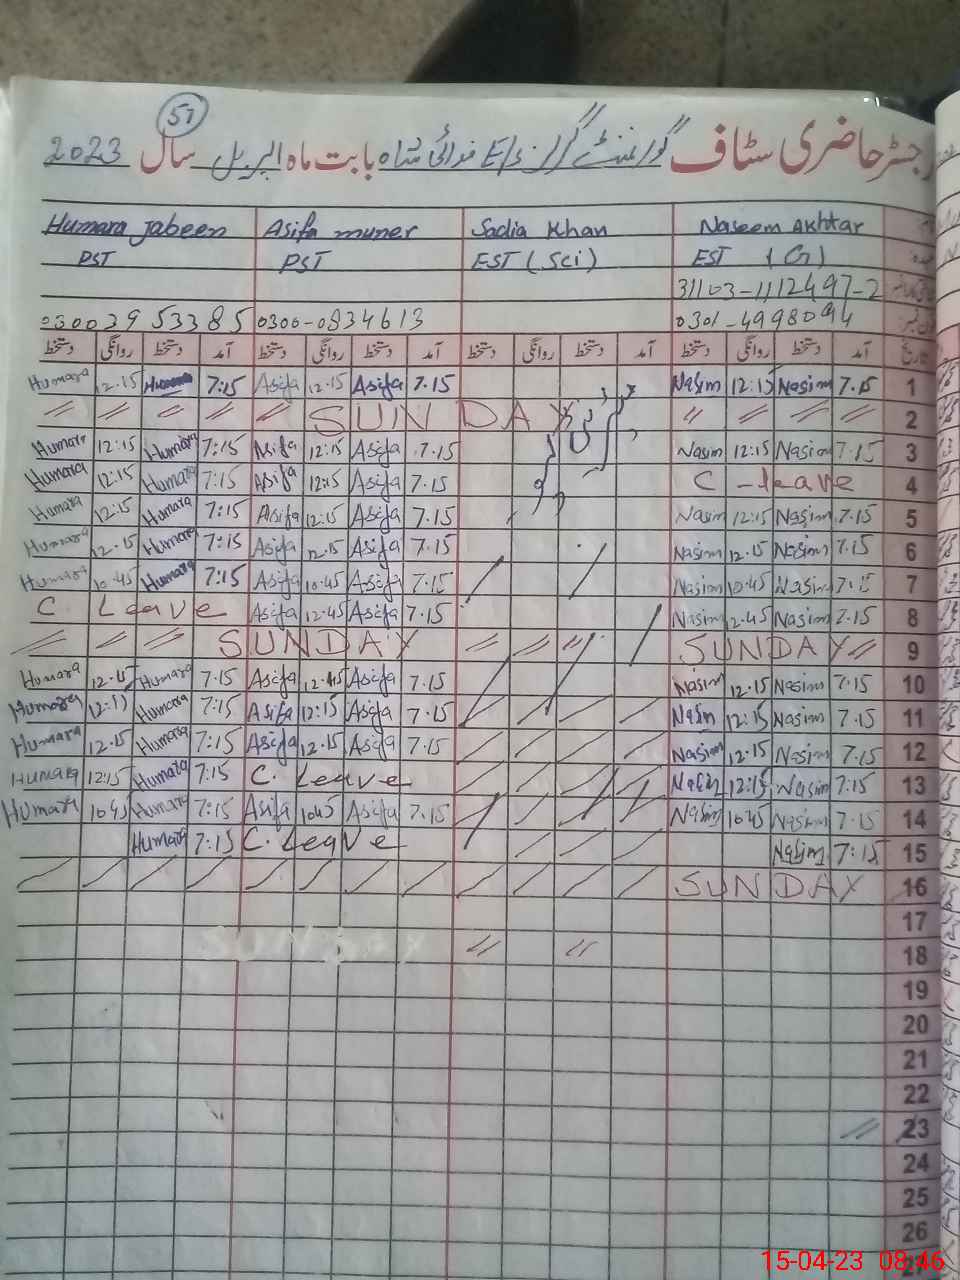 51
رجسٹر حاضری سٹاف گورنمنٹ گرلز E/S بابت ماہ اپریل سال 2023
Humara Jabeen Asifa muner Sadia Khan Naseem Akhtar
PST PST EST (Sci) EST (G)
31103-1112497-2
03003953385 0300-0834613 0301-4998094
دستخط روانگی دستخط آمد دستخط روانگی دستخط آمد دستخط روانگی دستخط آمد دستخط روانگی دستخط آمد تاریخ
Humara 12.15 7:15 Asifa 12.15 Asifa 7.15 Nasim 12:15 Nasim 7.15 1
SUNDAY 2
Humara 12:15 Humara 7:15 Asifa 12:15 Asifa 7.15 Nasim 12:15 Nasim 7.15 3
Humara 12:15 Humara 7:15 Asifa 12:15 Asifa 7.15 C-leave 4
Humara 12:15 Humara 7:15 Asifa 12:15 Asifa 7.15 Nasim 12:15 Nasim 7.15 5
Humara 12.15 Humara 7:15 Asifa 12.15 Asifa 7.15 Nasim 12.15 Nasim 7.15 6
Humara 10.45 Humara 7:15 Asifa 10.45 Asifa 7.15 Nasim 10.45 Nasim 7.15 7
C Leave Asifa 12.45 Asifa 7.15 Nasim 12.45 Nasim 7.15 8
SUNDAY SUNDAY 9
Humara 12.45 Humara 7.15 Asifa 12.45 Asifa 7.15 Nasim 12.15 Nasim 7.15 10
Humara 12:15 Humara 7:15 Asifa 12:15 Asifa 7.15 Nasim 12:15 Nasim 7.15 11
Humara 12.15 Humara 7:15 Asifa 12.15 Asifa 7.15 Nasim 12.15 Nasim 7.15 12
Humara 12:15 Humara 7:15 C. Leave Nasim 12:15 Nasim 7:15 13
Humara 10:45 Humara 7:15 Asifa 1045 Asifa 7.15 Nasim 10.45 Nasim 7.15 14
Humara 7:15 C. Leave Nasim 7:15 15
SUNDAY 16
17
18
19
20
21
22
23
24
25
26
27
15-04-23 08:46